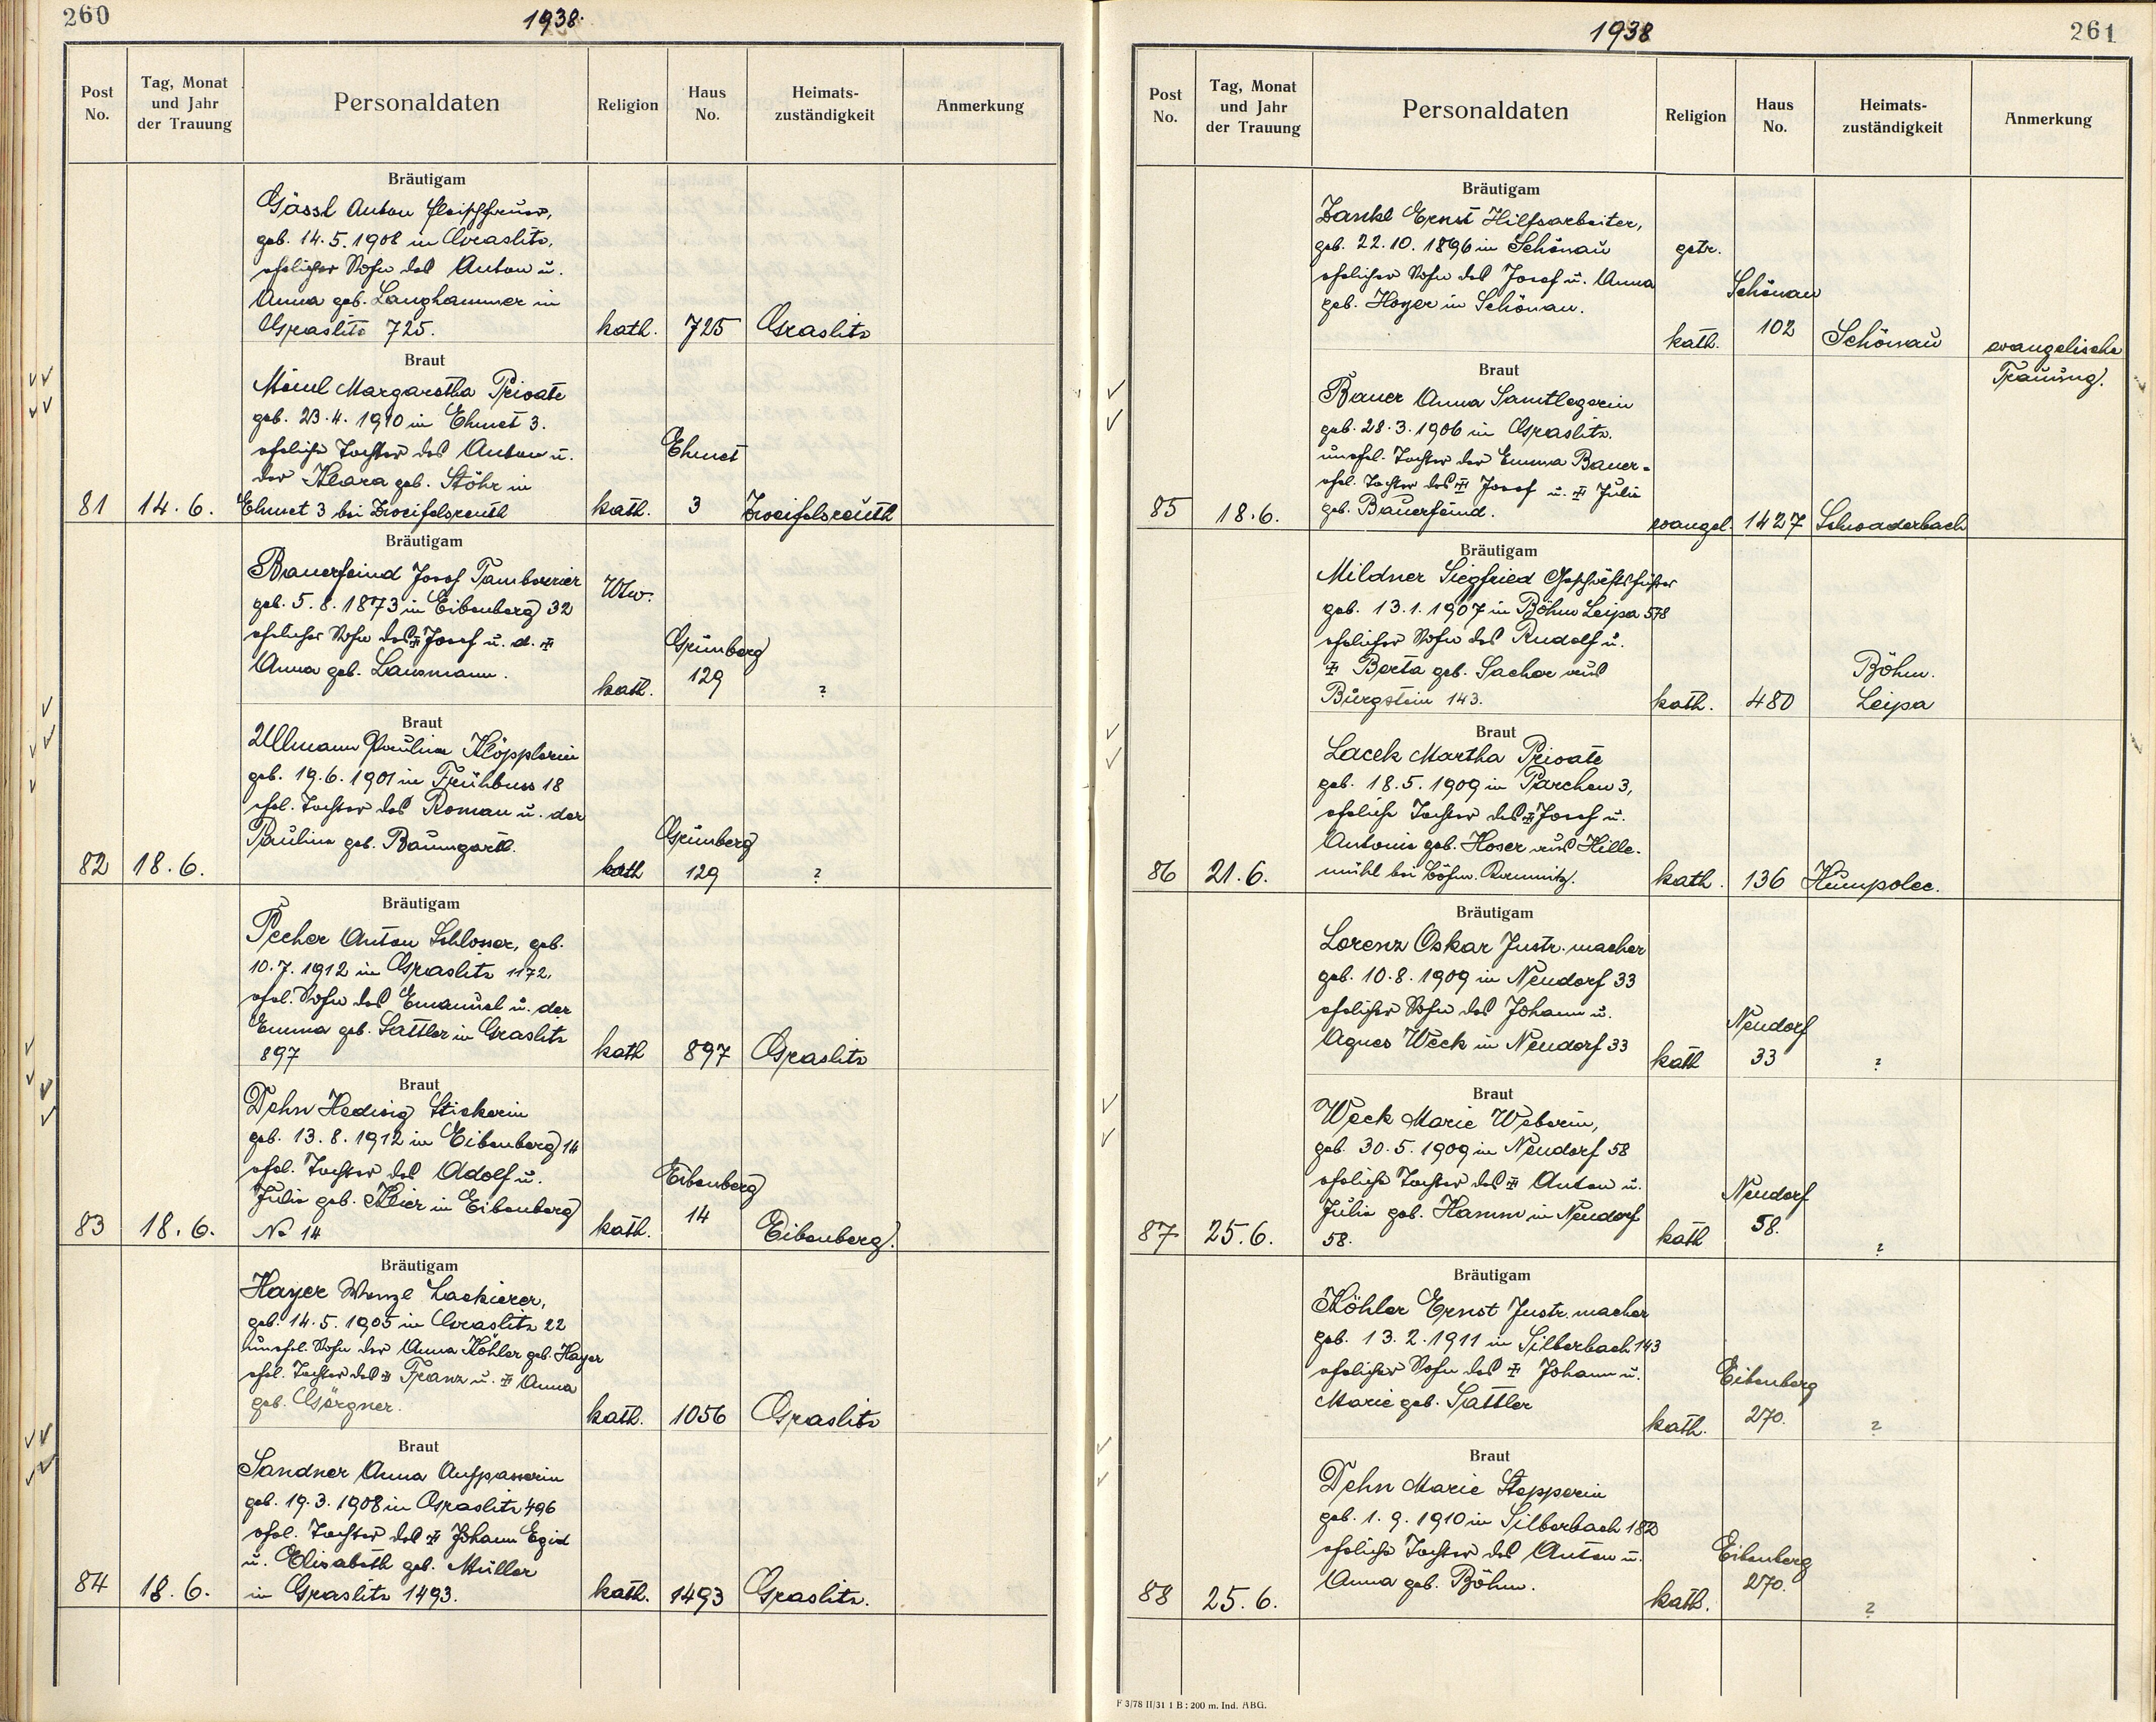 260
1938.
Post No.
Tag, Monat und Jahr der Trauung
Personaldaten
Religion
Haus No.
Heimats-zuständigkeit
Anmerkung
Bräutigam
Gässl Anton
geb. 14.5.1908 in Graslitz,
ehelicher Sohn des Anton u.
Anna geb. Langhammer in
Graslitz 725.
kath. 725 Graslitz
Braut
Margaretha Private
geb. 23.4.1910 in Ehmet 3.
eheliche Tochter des Anton u.
der Klara geb. Stöhr in
Ehmet
81 14.6. Ehmet 3 bei Zweifelsreuth kath. 3 Zweifelsreuth
Bräutigam
Bauerfeind Josef Tamborierer
Wtw.
geb. 5.8.1873 in Eibenberg 32
ehelicher Sohn des ‡ Josef u. d. ‡
Grünberg
Anna geb. Lausmann.
kath. 129 ?
Braut
Ullmann Paulina Klöpplerin
geb. 19.6.1901 in Frühbuss 18
ehel. Tochter des Roman u. der
Grünberg
Paulina geb. Baumgartl.
82 18.6. kath 129 ?
Bräutigam
Pecher Anton Schlosser, geb.
10.7.1912 in Graslitz 1172,
ehel. Sohn des Emanuel u. der
Emma geb. Sattler in Graslitz
897 kath 897 Graslitz
Braut
Dehn Hedwig Stickerin
geb. 13.8.1912 in Eibenberg 14
ehel. Tochter des Adolf u.
Eibenberg
Julie geb. Kleier in Eibenberg
83 18.6. No 14 kath. 14 Eibenberg.
Bräutigam
Hayer Wenzl Lackierer,
geb. 14.5.1905 in Graslitz 22
unehel. Sohn der Anna Köhler geb. Hayer
ehel. Tochter des ‡ Franz u. ‡ Anna
geb. Görgner.
kath. 1056 Graslitz
Braut
Sandner Anna Aufpasserin
geb. 19.3.1908 in Graslitz 496
ehel. Tochter des ‡ Johann Egid
u. Elisabeth geb. Müller
84 18.6. in Graslitz 1493. kath. 1493 Graslitz.
1938
261
Post No.
Tag, Monat und Jahr der Trauung
Personaldaten
Religion
Haus No.
Heimats-zuständigkeit
Anmerkung
Bräutigam
Zankl Ernst Hilfsarbeiter,
geb. 22.10.1896 in Schönau getr.
ehelicher Sohn des Josef u. Anna
Schönau
geb. Hoyer in Schönau.
kath. 102 Schönau evangelische
Trauung.
Braut
Bauer Anna Samtlegerin
geb. 28.3.1906 in Graslitz.
unehel. Tochter der Emma Bauer-
ehel. Tochter des ‡ Josef u. ‡ Julie
85 18.6. geb. Bauerfeind. evangel. 1427 Schwaderbach
Bräutigam
Mildner Siegfried Geschäftsführer
geb. 13.1.1907 in Böhm Leipa 578
ehelicher Sohn des Rudolf u.
‡ Berta geb. Sacher aus
Böhm.
Bürgstein 143. kath. 480 Leipa
Braut
Lacek Martha Private
geb. 18.5.1909 in Parchen 3,
eheliche Tochter des ‡ Josef u.
Antonie geb. Hoser aus Hille-
86 21.6. mühl bei Böhm. Kamnitz. kath. 136 Humpolec.
Bräutigam
Lorenz Oskar Instr. macher
geb. 10.8.1909 in Neudorf 33
ehelicher Sohn des Johann u.
Neudorf
Agnes Weck in Neudorf 33
kath 33 ?
Braut
Weck Marie Weberin,
geb. 30.5.1909 in Neudorf 58
eheliche Tochter des ‡ Anton u.
Neudorf
Julie geb. Hamm in Neudorf
87 25.6. 58. kath 58. ?
Bräutigam
Köhler Ernst Instr. macher
geb. 13.2.1911 in Silberbach 143
ehelicher Sohn des ‡ Johann u.
Eibenberg
Marie geb. Sattler
kath. 270. ?
Braut
Dehn Marie Stepperin
geb. 1.9.1910 in Silberbach 182
eheliche Tochter des Anton u.
Eibenberg
Anna geb. Böhm.
88 25.6. kath. 270. ?
F 3/78 II/31 1 B : 200 m. Ind. ABG.